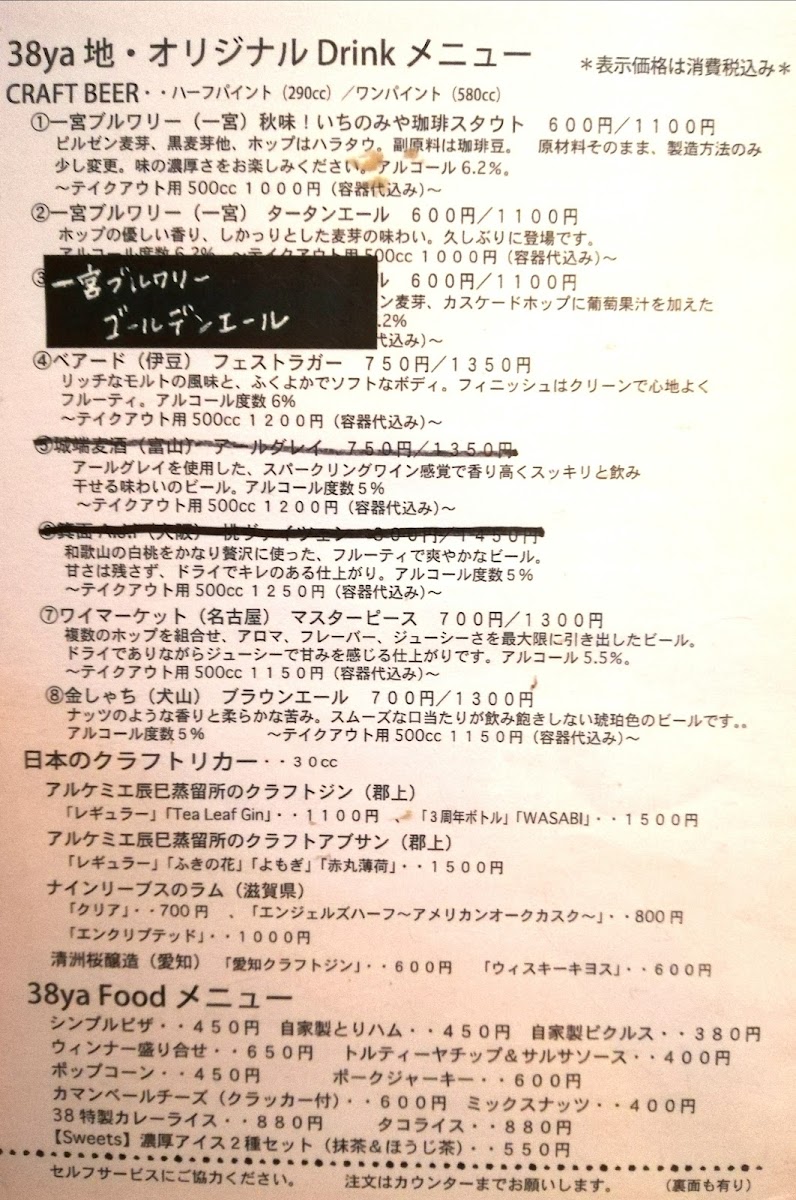 38ya 地・オリジナル Drink メニュー
＊表示価格は消費税込み＊
CRAFT BEER・・ハーフパイント（290cc）／ワンパイント（580cc）
①一宮ブルワリー（一宮）秋味！いちのみや珈琲スタウト　６００円／１１００円
ピルゼン麦芽、黒麦芽他、ホップはハラタウ。副原料は珈琲豆。　原材料そのまま、製造方法のみ
少し変更。味の濃厚さをお楽しみください。アルコール 6.2%。
～テイクアウト用 500cc １０００円（容器代込み）～
②一宮ブルワリー（一宮）　タータンエール　６００円／１１００円
ホップの優しい香り、しかっりとした麦芽の味わい。久しぶりに登場です。
アルコール度数 6.2%　～テイクアウト用 500cc １０００円（容器代込み）～
③
一宮ブルワリー
ゴールデンエール
ル　６００円／１１００円
ン麦芽、カスケードホップに葡萄果汁を加えた
.2%
代込み）～
④ベアード（伊豆）　フェストラガー　７５０円／１３５０円
リッチなモルトの風味と、ふくよかでソフトなボディ。フィニッシュはクリーンで心地よく
フルーティ。アルコール度数 6%
～テイクアウト用 500cc １２００円（容器代込み）～
⑤城端麦酒（富山）　アールグレイ　７５０円／１３５０円
アールグレイを使用した、スパークリングワイン感覚で香り高くスッキリと飲み
干せる味わいのビール。アルコール度数５%
～テイクアウト用 500cc １２００円（容器代込み）～
（大阪）　桃ヴァイツェン　８００円／１４５０円
和歌山の白桃をかなり贅沢に使った、フルーティで爽やかなビール。
甘さは残さず、ドライでキレのある仕上がり。アルコール度数５%
～テイクアウト用 500cc １２５０円（容器代込み）～
⑦ワイマーケット（名古屋）　マスターピース　７００円／１３００円
複数のホップを組合せ、アロマ、フレーバー、ジューシーさを最大限に引き出したビール。
ドライでありながらジューシーで甘みを感じる仕上がりです。アルコール 5.5%。
～テイクアウト用 500cc １１５０円（容器代込み）～
⑧金しゃち（犬山）　ブラウンエール　７００円／１３００円
ナッツのような香りと柔らかな苦み。スムーズな口当たりが飲み飽きしない琥珀色のビールです。。
アルコール度数５%　　　～テイクアウト用 500cc １１５０円（容器代込み）～
日本のクラフトリカー・・３０cc
アルケミエ辰巳蒸留所のクラフトジン（郡上）
「レギュラー」「Tea Leaf Gin」・・１１００円　、「３周年ボトル」「WASABI」・・１５００円
アルケミエ辰巳蒸留所のクラフトアブサン（郡上）
「レギュラー」「ふきの花」「よもぎ」「赤丸薄荷」・・１５００円
ナインリーブスのラム（滋賀県）
「クリア」・・700 円　、「エンジェルズハーフ～アメリカンオークカスク～」・・800 円
「エンクリプテッド」・・１０００円
清洲桜醸造（愛知）「愛知クラフトジン」・・６００円　「ウィスキーキヨス」・・６００円
38ya Food メニュー
シンプルピザ・・４５０円　自家製とりハム・・４５０円　自家製ピクルス・・３８０円
ウィンナー盛り合せ・・６５０円　トルティーヤチップ＆サルサソース・・４００円
ポップコーン・・４５０円　　　ポークジャーキー・・６００円
カマンベールチーズ（クラッカー付）・・６００円　ミックスナッツ・・４００円
38 特製カレーライス・・８８０円　　　タコライス・・８８０円
【Sweets】濃厚アイス２種セット（抹茶＆ほうじ茶）・・５５０円
セルフサービスにご協力ください。　　注文はカウンターまでお願いします。　　（裏面も有り）